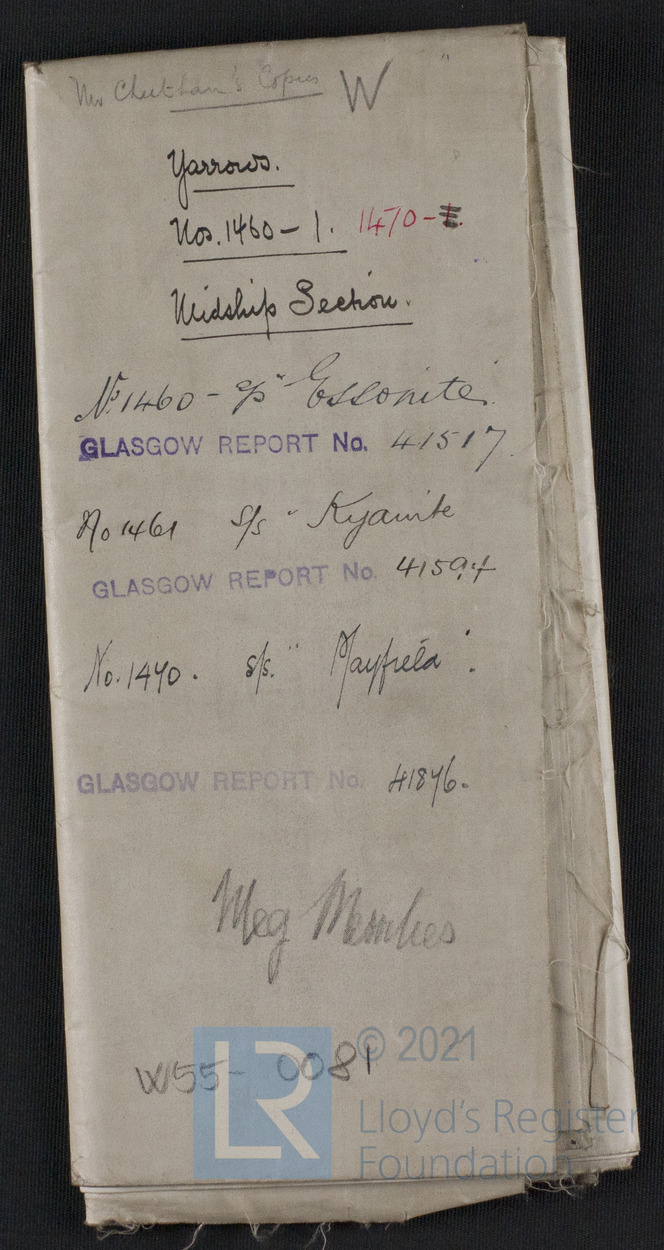 Mr Cheetham's Copies W
Yarrows.
Nos. 1460 - 1. 1470 -
Midship Section.
No 1460 - s/s "Essonite".
GLASGOW REPORT No. 41517.
No 1461 s/s "Kyanite
GLASGOW REPORT No. 41594
No. 1470. s/s. "Mayfield".
GLASGOW REPORT No. 41876.
Meg Merrilies
W55- 0081
LR
© 2021
Lloyd's Register
Foundation